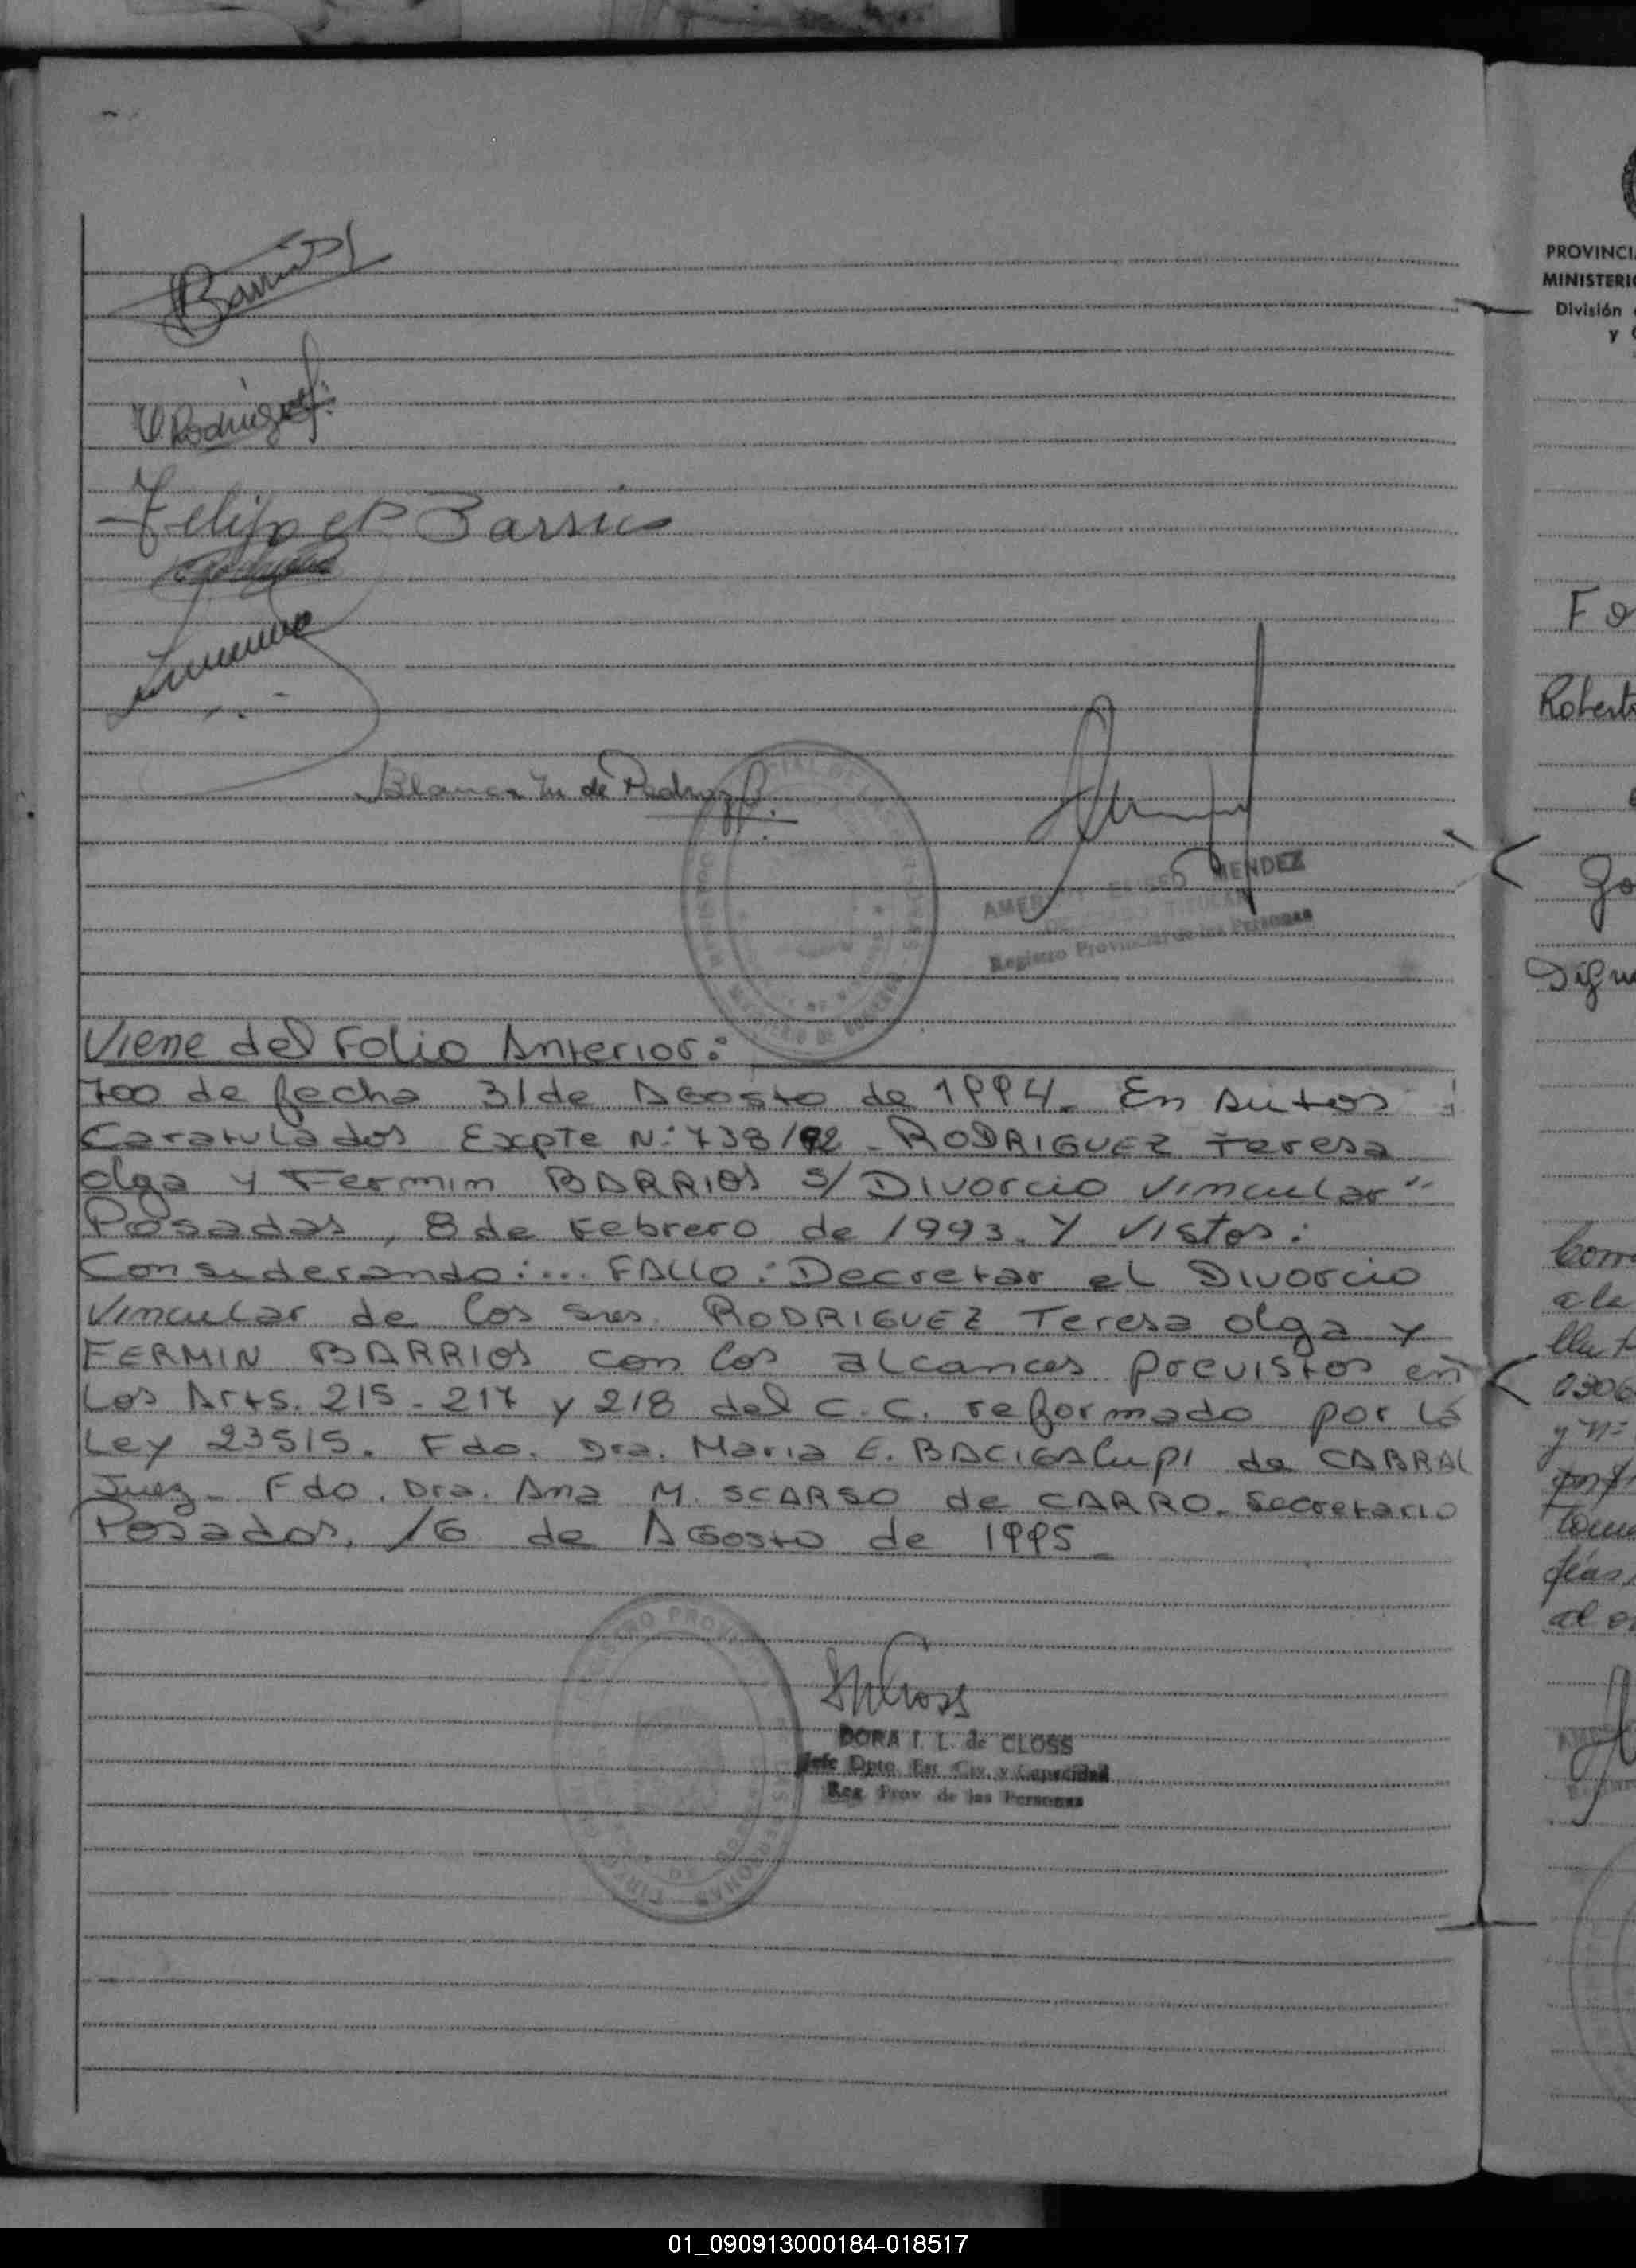 Barrios
T. O. Rodriguez
Felipe Barrios
Blanca de
MENDEZ
Registro Provincial de las Personas
Viene del Folio Anterior:
700 de fecha 31 de Agosto de 1994. En Autos
Caratulados Expte N: 738/92 - RODRIGUEZ Teresa
Olga y Fermin BARRIOS S/ Divorcio Vincular"
Posadas, 8 de Febrero de 1993. Y Vistos:
Considerando:... FALLO: Decretar el Divorcio
Vincular de los Sres. RODRIGUEZ Teresa Olga y
FERMIN BARRIOS con los alcances previstos en
Los Arts. 215 - 217 y 218 del C.C. reformado por la
Ley 23515. Fdo. Dra. Maria E. BACIGALupI de CABRAL
Juez - Fdo. Dra. Ana M. SCARSO de CARRO. Secretario
Posadas, 16 de Agosto de 1995.
DORA I. L. de CLOSS
Jefe Dpto. Est. Civ. y Capacidad
Reg. Prov. de las Personas
PROVINCI
MINISTERI
División
y
Fo
Robert
a la
0306
al
01_090913000184-018517